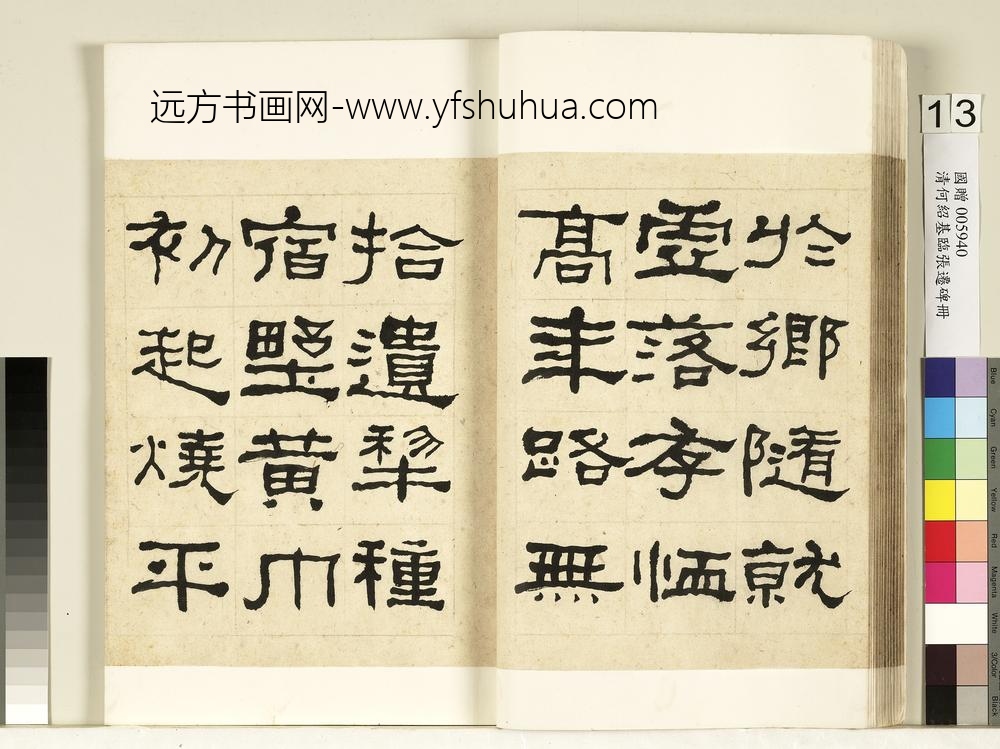 远方书画网-www.yfshuhua.com
於鄉隨就
虛落存恤
高年路無
拾遺犂種
宿野黃巾
初起燒平
13
國贈 005940
清何紹基臨張遷碑冊
Blue
Cyan
Green
Yellow
Red
Magenta
White
3/Color
Black